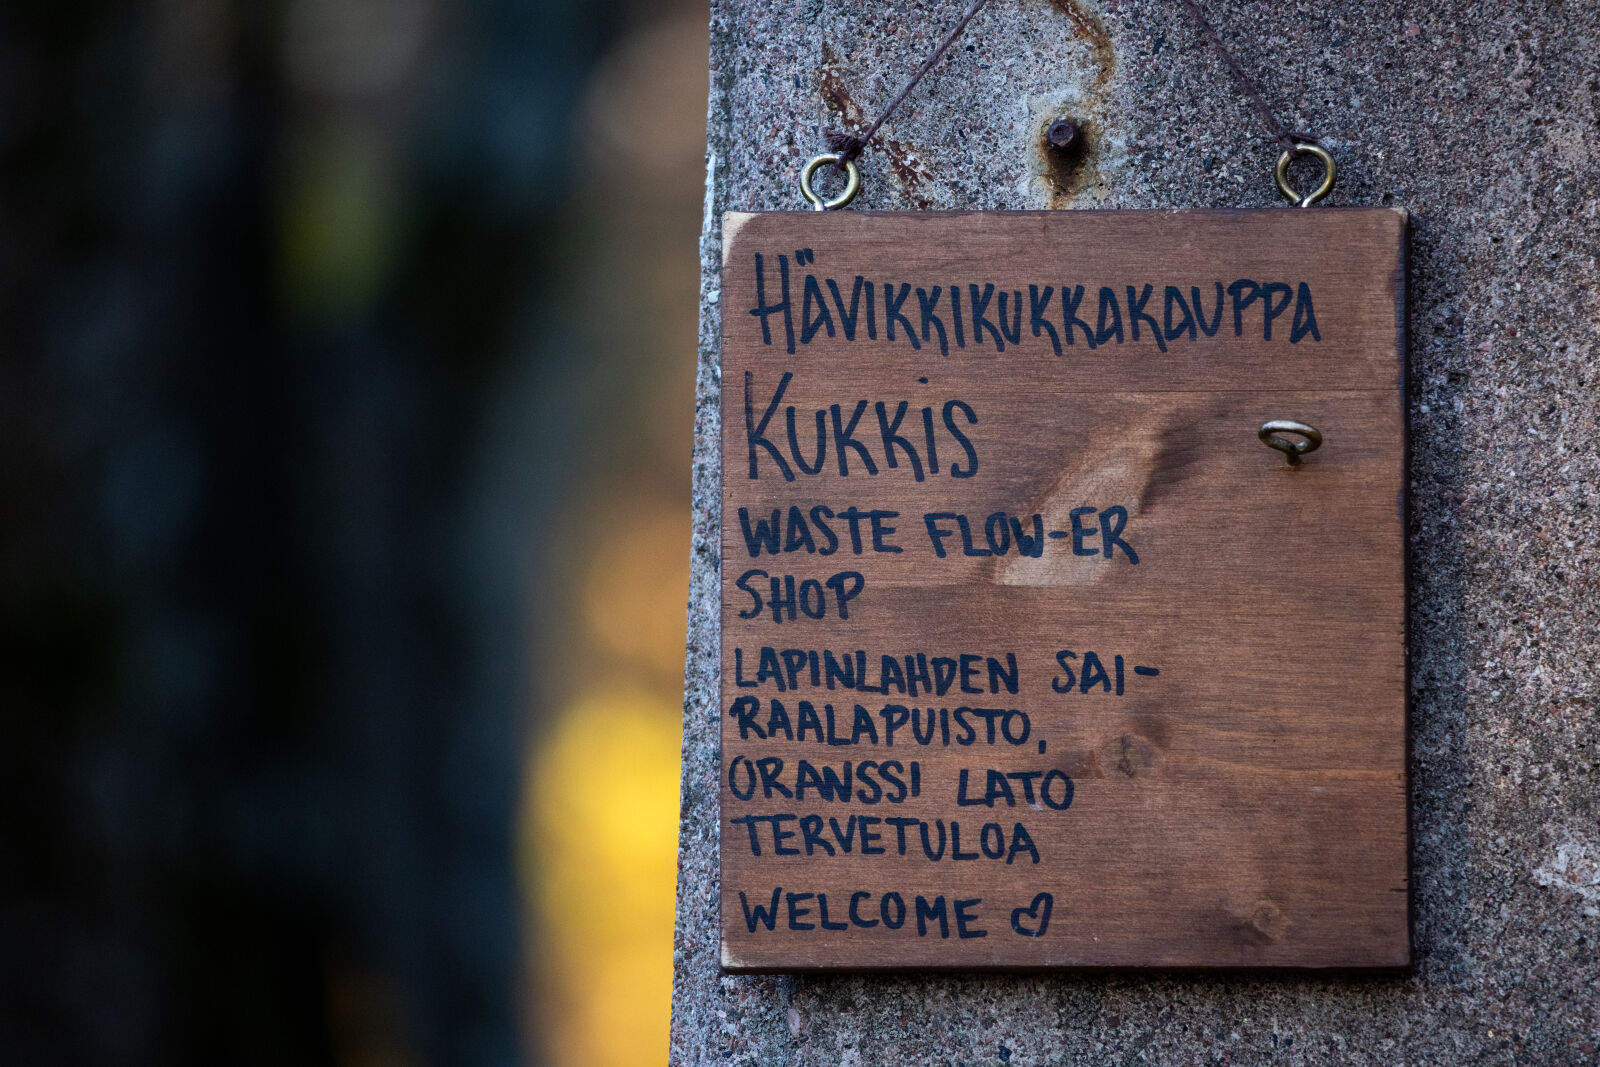 HÄVIKKIKUKKAKAUPPA
KUKKiS
WASTE FLOW-ER
SHOP
LAPINLAHDEN SAI-
RAALAPUISTO,
ORANSSI LATO
TERVETULOA
WELCOME ♡